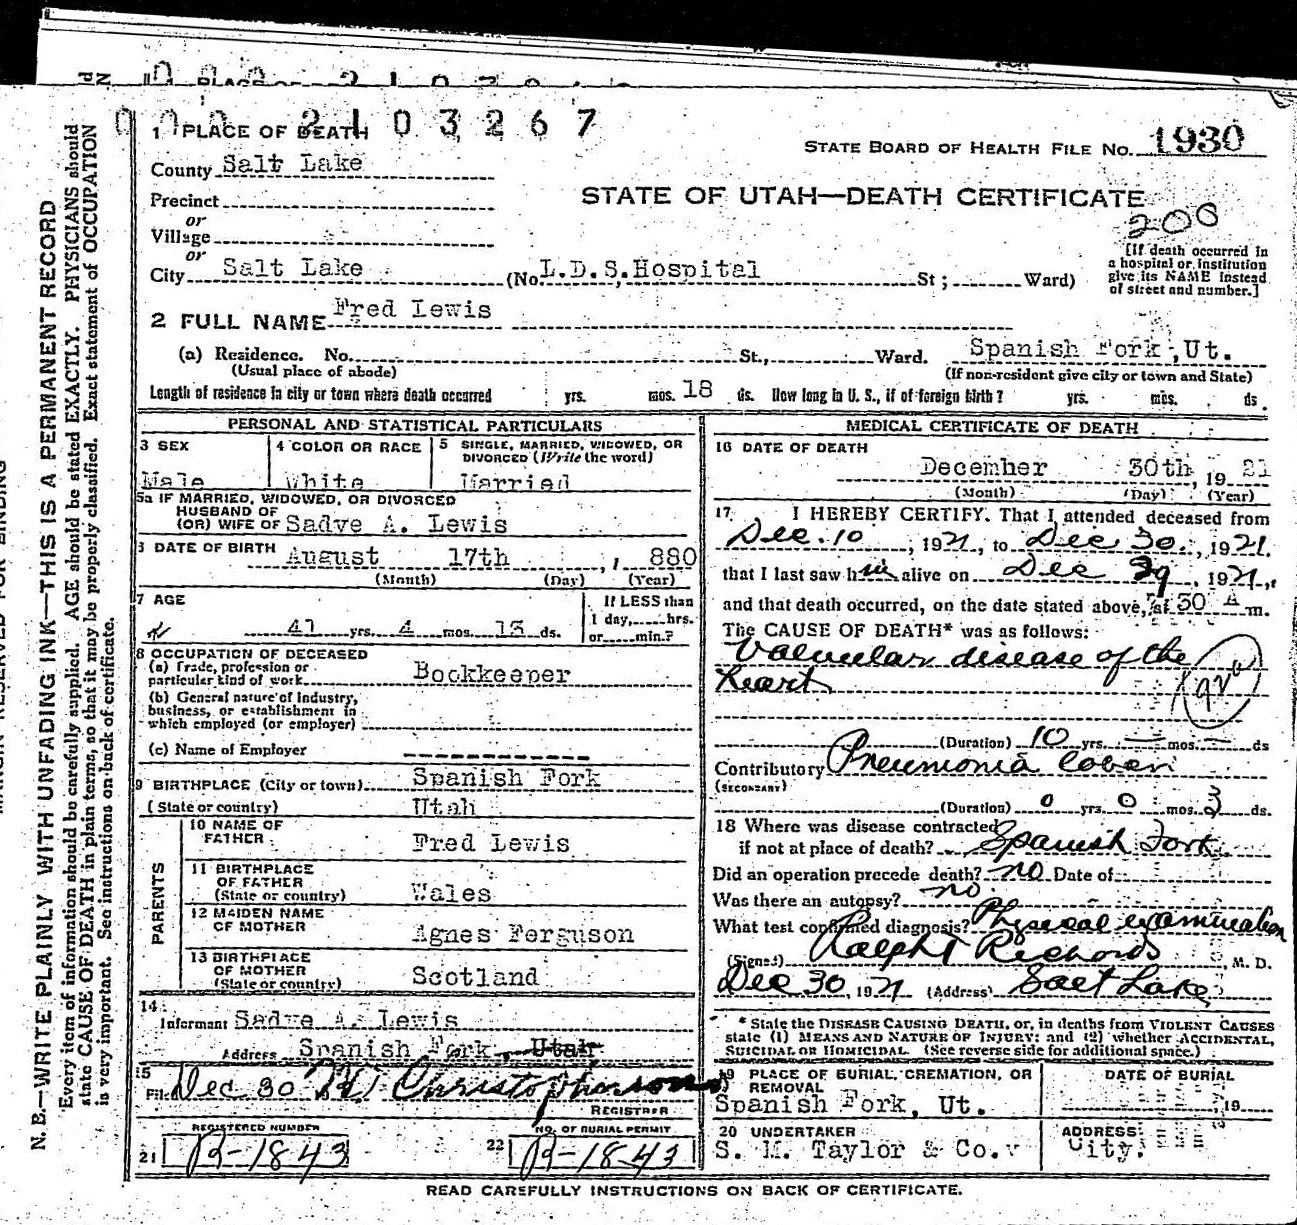 2103267
1 PLACE OF DEATH
STATE BOARD OF HEALTH FILE NO. 1930
County Salt Lake
STATE OF UTAH—DEATH CERTIFICATE
Precinct
200
or
Village
or
City Salt Lake (No. L.D.S. Hospital St; Ward)
[If death occurred in
a hospital or institution
give its NAME instead
of street and number.]
2 FULL NAME Fred Lewis
(a) Residence. No. St., Ward. Spanish Fork, Ut.
(Usual place of abode) (If non-resident give city or town and State)
Length of residence in city or town where death occurred yrs. mos. 18 ds. How long in U. S., if of foreign birth? yrs. mos. ds.
PERSONAL AND STATISTICAL PARTICULARS
3 SEX
Male
4 COLOR OR RACE
White
5 SINGLE, MARRIED, WIDOWED, OR
DIVORCED (Write the word)
Married
5a IF MARRIED, WIDOWED, OR DIVORCED
HUSBAND OF
(OR) WIFE OF Sadye A. Lewis
DATE OF BIRTH August 17th , 880
(Month) (Day) (Year)
7 AGE
41 yrs. 4 mos. 13 ds.
If LESS than
1 day, hrs.
or min.?
8 OCCUPATION OF DECEASED
(a) Trade, profession or
particular kind of work Bookkeeper
(b) General nature of industry,
business, or establishment in
which employed (or employer)
(c) Name of Employer
9 BIRTHPLACE (City or town) Spanish Fork
(State or country) Utah
PARENTS
10 NAME OF
FATHER Fred Lewis
11 BIRTHPLACE
OF FATHER
(State or country) Wales
12 MAIDEN NAME
OF MOTHER Agnes Ferguson
13 BIRTHPLACE
OF MOTHER
(State or country) Scotland
14
Informant Sadye A. Lewis
Address Spanish Fork, Utah
15
Filed Dec 30 Christopherson
REGISTRAR
REGISTERED NUMBER
21 R-1843
NO. OF BURIAL PERMIT
22 R-1843
MEDICAL CERTIFICATE OF DEATH
16 DATE OF DEATH
December 30th, 19 21
(Month) (Day) (Year)
17 I HEREBY CERTIFY. That I attended deceased from
Dec. 10, 1921, to Dec 30., 1921.
that I last saw him alive on Dec 29, 1921,
and that death occurred, on the date stated above, at 30 A m.
The CAUSE OF DEATH* was as follows:
Valvular disease of the
heart
(Duration) 10 yrs. — mos. — ds
Contributory Pneumonia Lobar
(SECONDARY)
(Duration) 0 yrs. 0 mos. 3 ds.
18 Where was disease contracted
if not at place of death? Spanish Fork
Did an operation precede death? no Date of
Was there an autopsy? no.
What test confirmed diagnosis? Physical examination
(Signed) Ralph T Richards, M. D.
Dec 30, 1921 (Address) Salt Lake
* State the DISEASE CAUSING DEATH, or, in deaths from VIOLENT CAUSES
state (1) MEANS AND NATURE OF INJURY; and (2) whether ACCIDENTAL,
SUICIDAL OR HOMICIDAL. (See reverse side for additional space.)
19 PLACE OF BURIAL, CREMATION, OR
REMOVAL
Spanish Fork, Ut.
DATE OF BURIAL
, 19
20 UNDERTAKER
S. M. Taylor & Co.
ADDRESS
City.
READ CAREFULLY INSTRUCTIONS ON BACK OF CERTIFICATE.
N. B.—WRITE PLAINLY WITH UNFADING INK—THIS IS A PERMANENT RECORD
Every item of information should be carefully supplied. AGE should be stated EXACTLY. PHYSICIANS should
state CAUSE OF DEATH in plain terms, so that it may be properly classified. Exact statement of OCCUPATION
is very important. See instructions on back of certificate.